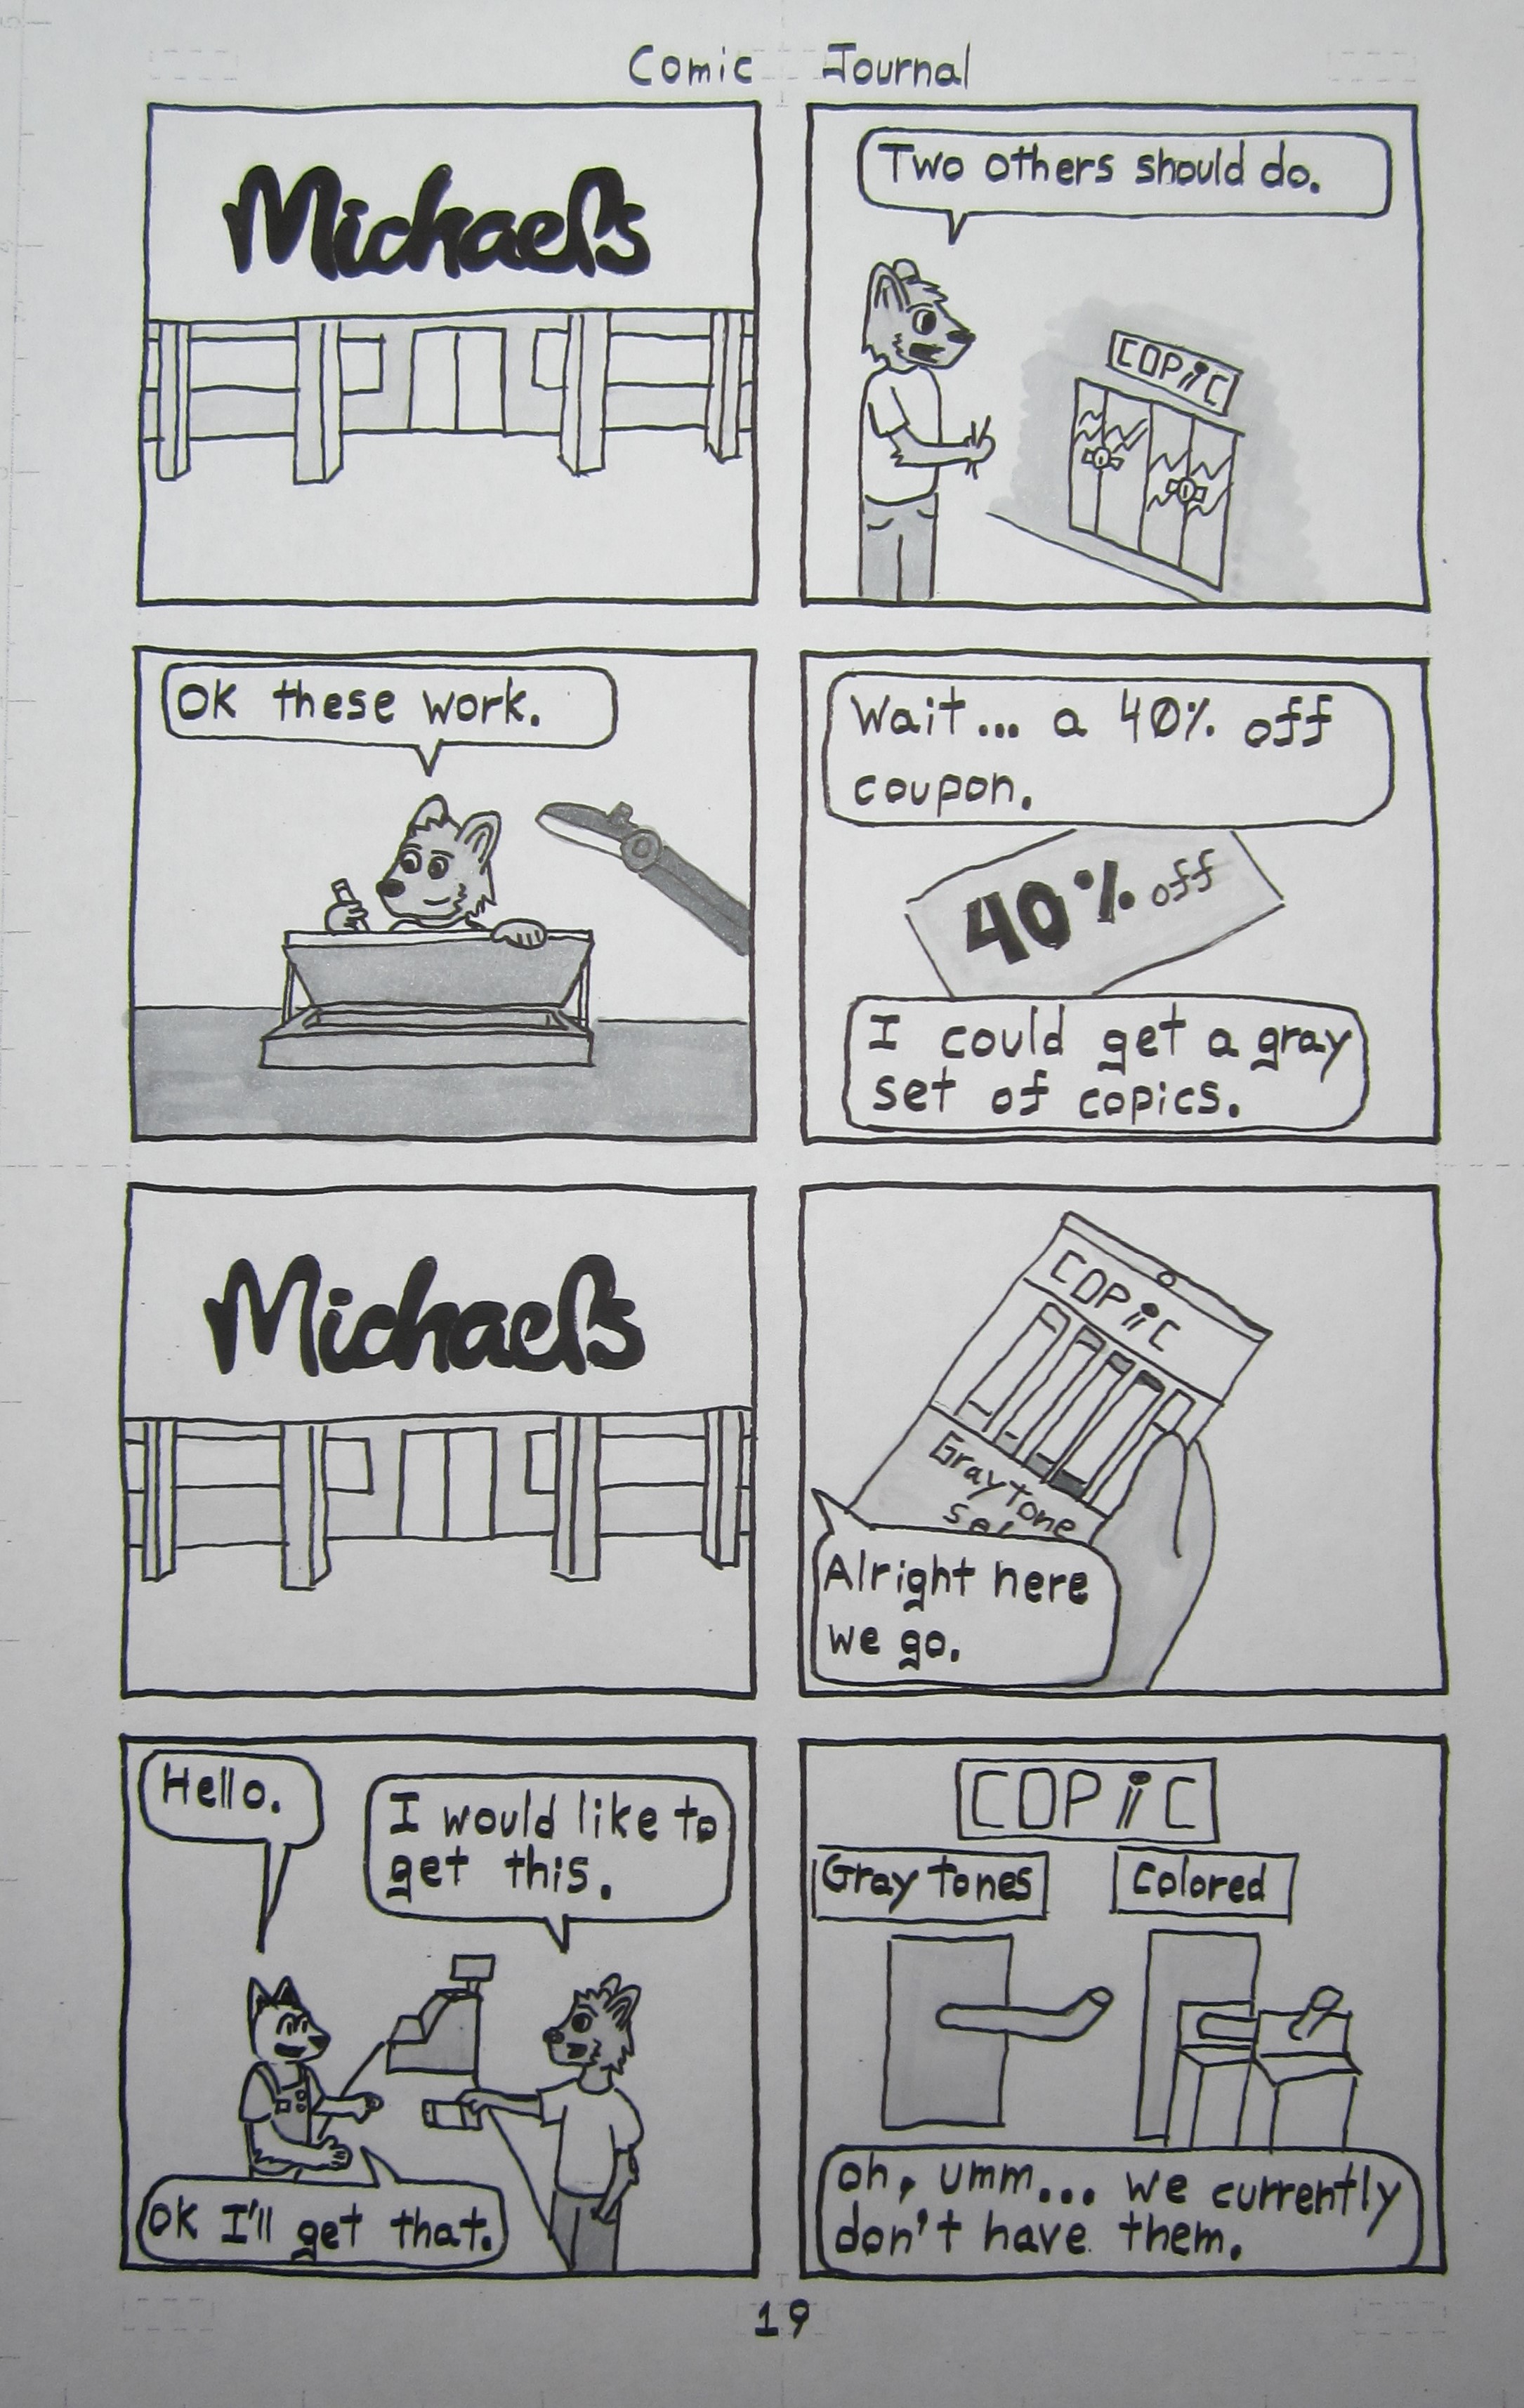 Comic Journal
Michaels
Two others should do.
COPiC
OK these work.
Wait... a 40% off
coupon.
40% off
I could get a gray
set of copics.
Michaels
COPiC
Gray tone
Set
Alright here
we go.
Hello.
I would like to
get this.
OK I'll get that.
COPiC
Gray tones
Colored
oh, umm... we currently
don't have them.
19